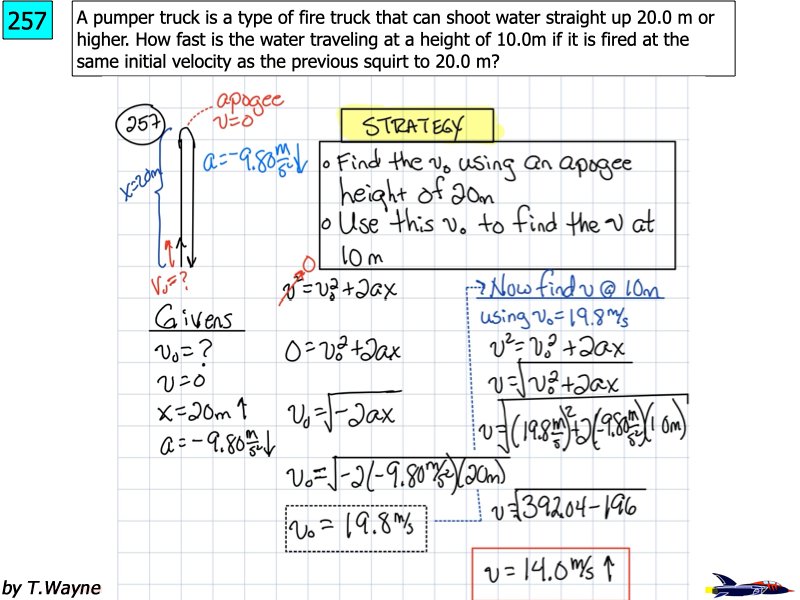 257
A pumper truck is a type of fire truck that can shoot water straight up 20.0 m or
higher. How fast is the water traveling at a height of 10.0m if it is fired at the
same initial velocity as the previous squirt to 20.0 m?
257
apogee
v=0
x=20m
a=-9.80 m/s² ↓
v₀=?
STRATEGY
o Find the v₀ using an apogee
height of 20m
o Use this v₀ to find the v at
10 m
Givens
v₀=?
v=0
x=20m ↑
a=-9.80 m/s² ↓
0
v²=v₀²+2ax
0=v₀²+2ax
v₀=√-2ax
v₀=√-2(-9.80 m/s²)(20m)
v₀= 19.8 m/s
→? Now find v @ 10m
using v₀=19.8 m/s
v²=v₀²+2ax
v=√v₀²+2ax
v=√(19.8 m/s)²+2(-9.80 m/s²)(10m)
v=√392.04-196
v=14.0 m/s ↑
by T.Wayne